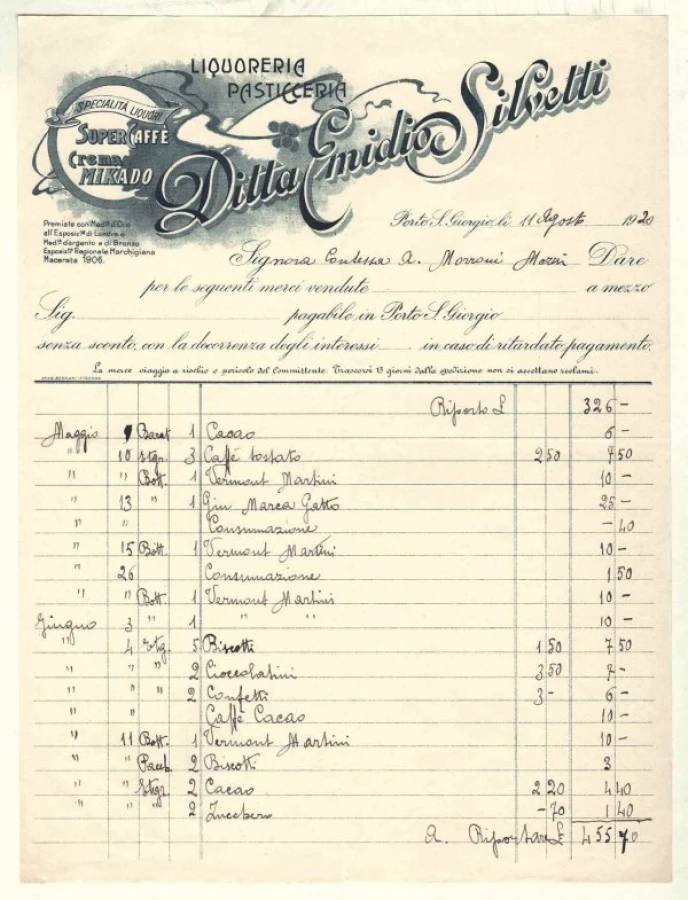 LIQUORERIA
PASTICCERIA
SPECIALITÀ LIQUORI
SUPERCAFFÈ
Crema
MIKADO
Ditta Emidio Silvetti
Premiata con Med.ª d'Oro
all'Esposiz.ne di Londra e
Med.ª d'argento e di Bronzo
Esposiz.ne Regionale Marchigiana
Macerata 1906.
Porto S. Giorgio, li 11 Agosto 1920
Signora Contessa A. Morroni Mozzi Dare
per le seguenti merci vendute a mezzo
Sig. pagabile in Porto S. Giorgio
senza sconto, con la decorrenza degli interessi in caso di ritardato pagamento.
La merce viaggia a rischio e pericolo del Committente. Trascorsi 15 giorni dalla spedizione non si accettano reclami.
Riporto L 326 -
Maggio 9 Barat 1 Cacao 6 -
" 10 Ettgr. 3 Caffè tostato 2 50 7 50
" " Bott. 1 Vermont Martini 10 -
" 13 " 1 Gin Marca Gatto 25 -
" " Consumazione - 40
" 15 Bott. 1 Vermont Martini 10 -
" 26 Consumazione 1 50
" " Bott. 1 Vermont Martini 10 -
Giugno 3 " 1 " " 10 -
" 4 Ettg. 5 Biscotti 1 50 7 50
" " " 2 Cioccolatini 3 50 7 -
" " " 2 Confetti 3 - 6 -
" " Caffè Cacao 10 -
" 11 Bott. 1 Vermont Martini 10 -
" " Pacch. 2 Biscotti 3
" " Ettgr. 2 Cacao 2 20 4 40
" " " 2 Zucchero - 70 1 40
A Riportare L 455 70